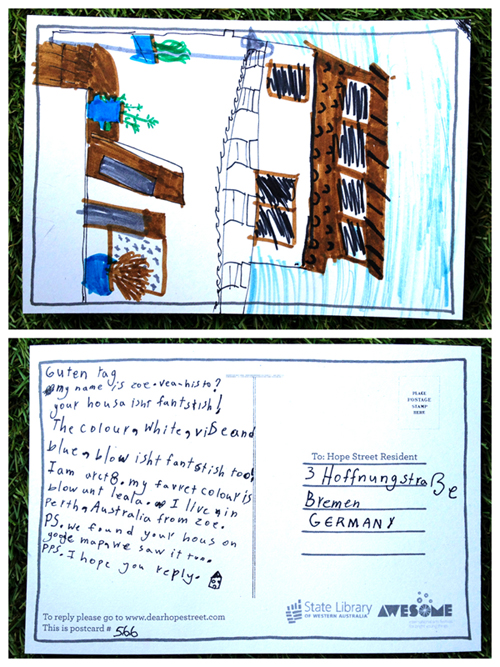 Guten tag
my name is zoe. vea-his to?
your housa isht fantstish!
The colour, white, viße and
blue, blow isht fantstish too!
I am arct 8. my favret colour is
blow unt leala. I live in
Perth, Australia from zoe.
PS. we found your hous on
google maps we saw it too.
PPS. I hope you reply.
To reply please go to www.dearhopestreet.com
This is postcard # 566
PLACE
POSTAGE
STAMP
HERE
To: Hope Street Resident
3 Hoffnungstraße
Bremen
GERMANY
State Library
OF WESTERN AUSTRALIA
AWESOME